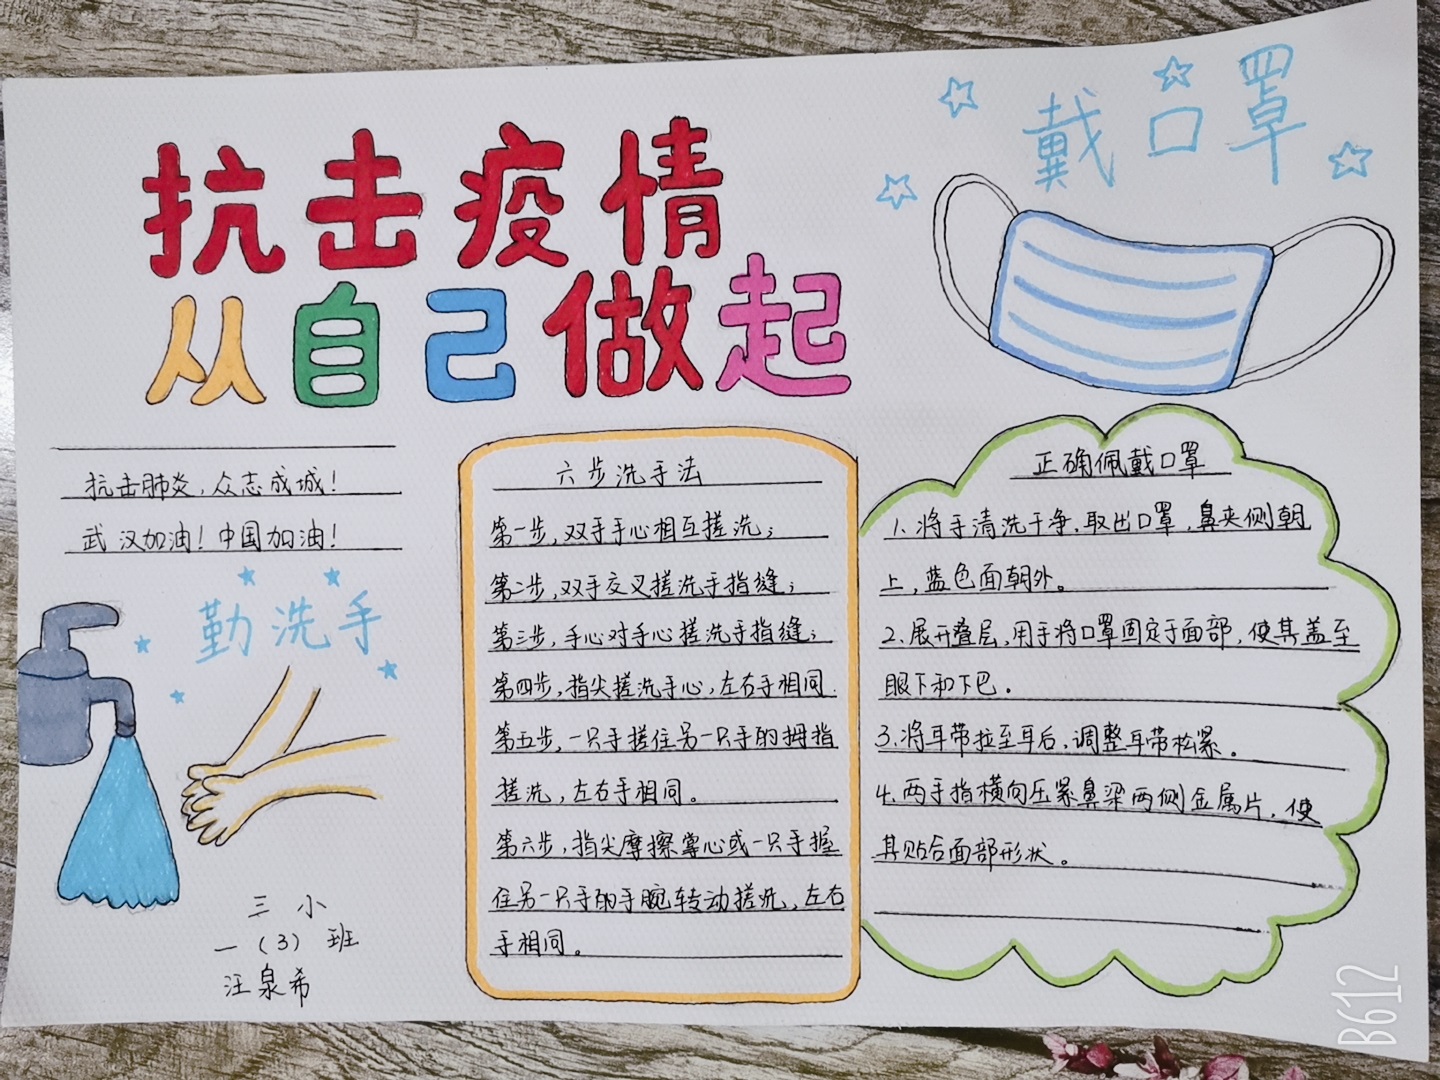 抗击疫情
从自己做起
戴口罩
抗击肺炎,众志成城!
武汉加油!中国加油!
勤洗手
六步洗手法
第一步,双手手心相互搓洗;
第二步,双手交叉搓洗手指缝;
第三步,手心对手心搓洗手指缝;
第四步,指尖搓洗手心,左右手相同
第五步,一只手搓住另一只手的拇指
搓洗,左右手相同。
第六步,指尖摩擦掌心或一只手握
住另一只手的手腕转动搓洗,左右
手相同。
正确佩戴口罩
1.将手清洗干净,取出口罩,鼻夹侧朝
上,蓝色面朝外。
2.展开叠层,用手将口罩固定于面部,使其盖至
眼下和下巴。
3.将耳带拉至耳后,调整耳带松紧。
4.两手指横向压紧鼻梁两侧金属片,使
其贴合面部形状。
三小
一(3)班
汪泉希
B612